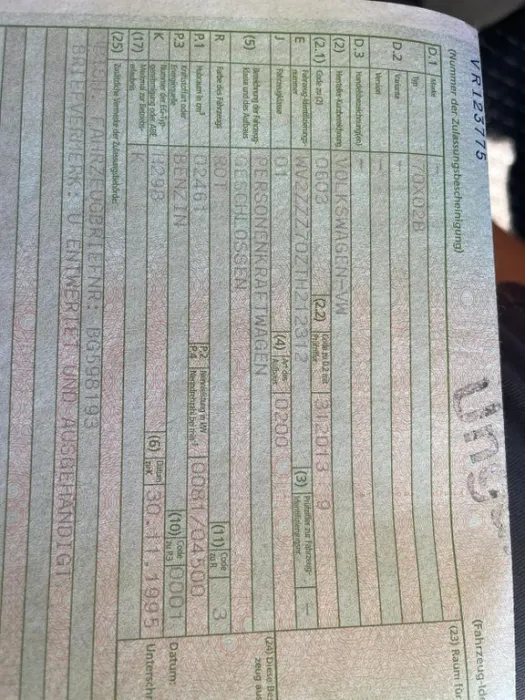 VR123775
(Nummer der Zulassungsbescheinigung)
(Fahrzeug-Id
ung
(23) Raum für
D.1 Marke –
Typ 70X02B
D.2 Variante –
Version –
D.3 Handelsbezeichnung(en) –
(2) Hersteller-Kurzbezeichnung VOLKSWAGEN-VW
(2.1) Code zu (2) 0603 (2.2) Code zu D.2 mit Prüfziffer 312013 9
E WV2ZZZ70ZTH212312 (3) Prüfziffer zur Fahrzeug-Identifizierungsnr. –
J Fahrzeugklasse 01 (4) Art des Aufbaus 0200
(5) Bezeichnung der Fahrzeugklasse und des Aufbaus PERSONENKRAFTWAGEN
GESCHLOSSEN
(24) Diese Be
zeug au
R Farbe des Fahrzeugs ROT (11) Code zu R 3
P.1 Hubraum in cm³ 02461 P.2 Nennleistung in kW P.4 Nenndrehzahl bei min⁻¹ 0081/04500
P.3 Kraftstoffart oder Energiequelle BENZIN (10) Code zu P.3 0001
Datum:
K H298 (6) Datum zu K 30.11.1995
Unterschr
(17)
(25) Zusätzliche Vermerke der Zulassungsbehörde:
FAHRZEUGBRIEFNR: BG598193
BRIEFVERMERK: U ENTWERTET UND AUSGEHÄNDIGT